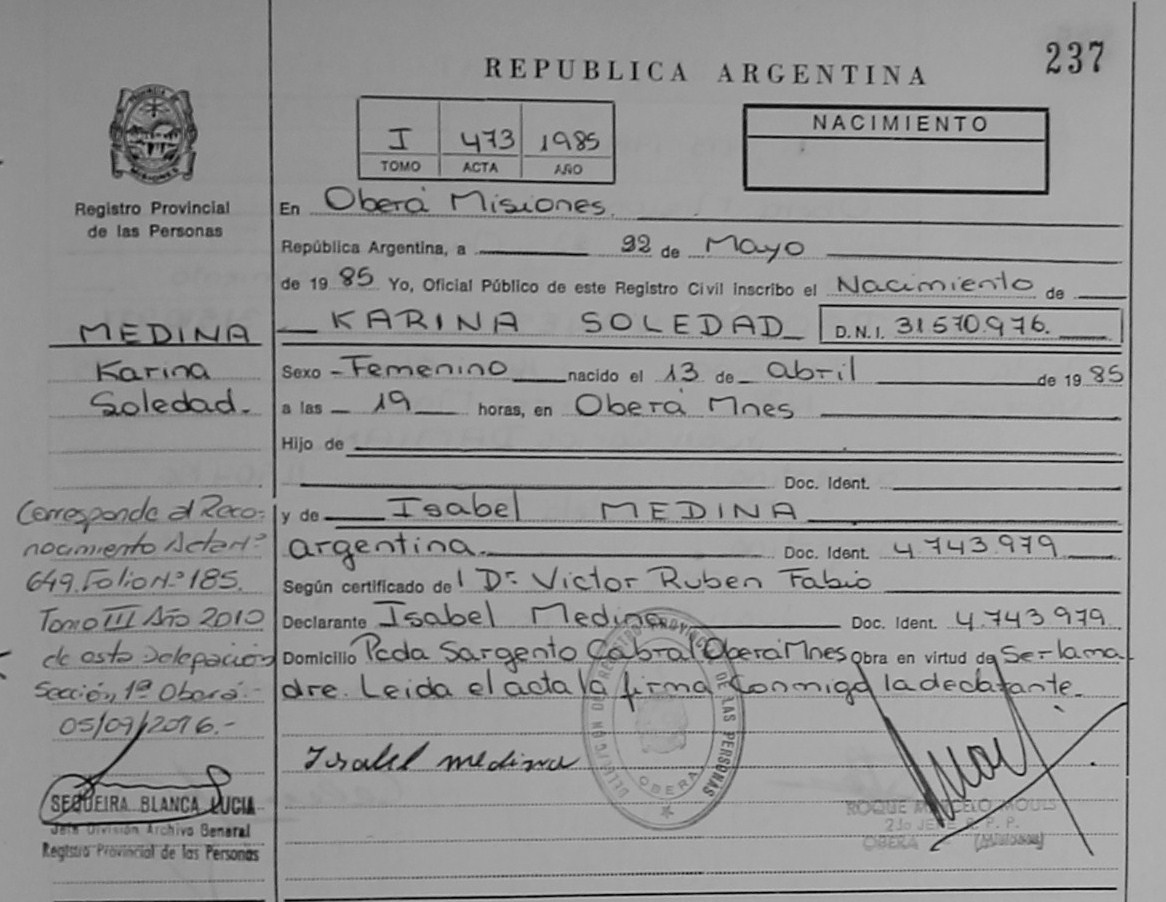 237
REPUBLICA ARGENTINA
I 473 1985
TOMO ACTA AÑO
NACIMIENTO
MISIONES
Registro Provincial
de las Personas
En Oberá Misiones.
República Argentina, a 22 de Mayo
de 1985 Yo, Oficial Público de este Registro Civil inscribo el Nacimiento de
KARINA SOLEDAD D.N.I. 31570.976.
Sexo - Femenino nacido el 13 de abril de 1985
a las 19 horas, en Oberá Mnes
Hijo de
Doc. Ident.
y de Isabel MEDINA
argentina. Doc. Ident. 4.743.979
Según certificado del Dr Victor Ruben Fabio
Declarante Isabel Medina Doc. Ident. 4.743.979
Domicilio Pcda Sargento Cabral Oberá Mnes Obra en virtud de Ser la ma
dre. Leida el acta la firma conmigo la declarante.
Isabel medina
MEDINA
Karina
Soledad.
Corresponde al Reco-
nocimiento Acta N°
649. Folio N° 185.
Tomo III Año 2010
de esta Delegación
Sección 1ª Oberá.-
05/09/2016.-
SEQUEIRA BLANCA LUCIA
Jefa División Archivo General
Registro Provincial de las Personas
DELEGACION DE REGISTRO PROVINCIAL DE LAS PERSONAS
OBERA
ROQUE MARCELO MOULS
2do JEFE R. P. P.
OBERA (Misiones)